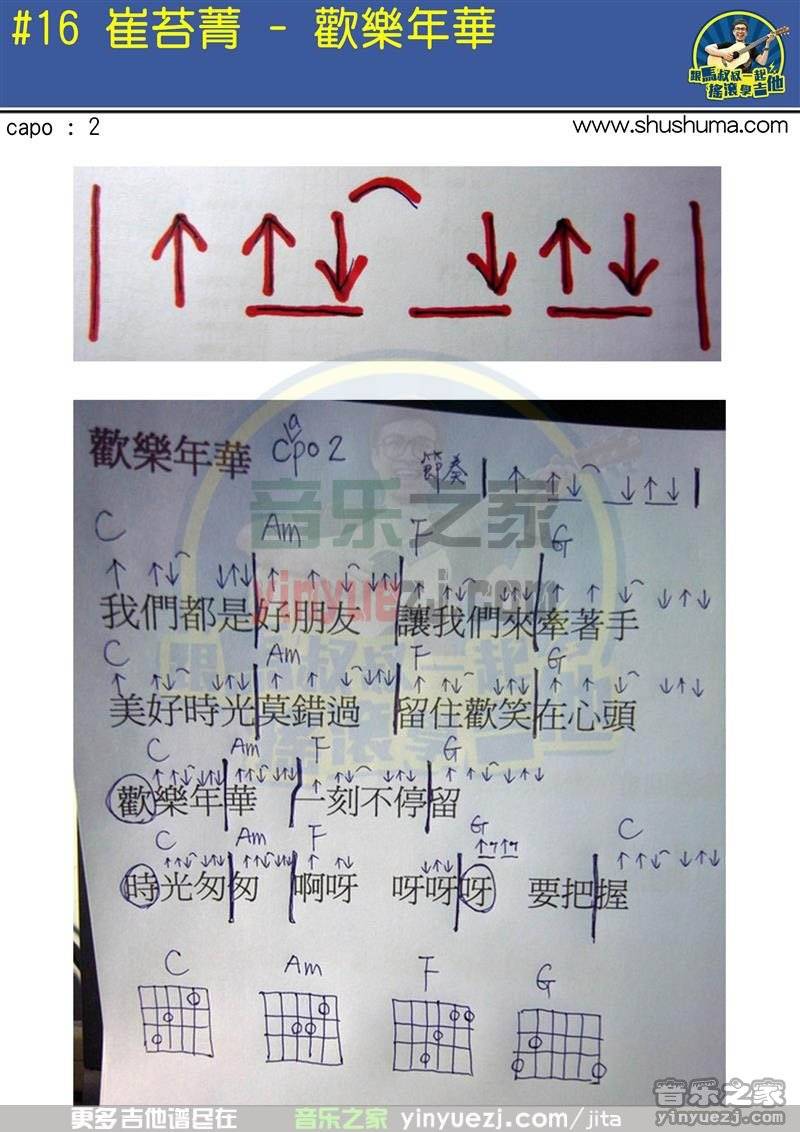 #16 崔苔菁 - 歡樂年華
跟馬叔叔一起
搖滾學吉他
capo : 2
www.shushuma.com
歡樂年華 capo 2 節奏
C Am F G
我們都是好朋友 讓我們來牽著手
C Am F G
美好時光莫錯過 留住歡笑在心頭
C Am F G
歡樂年華 一刻不停留
C Am F G C
時光匆匆 啊呀 呀呀呀 要把握
C Am F G
音乐之家
yinyuezj.com
跟馬叔叔一起
搖滾學
更多吉他谱尽在 音乐之家 yinyuezj.com/jita
音乐之家
yinyuezj.com